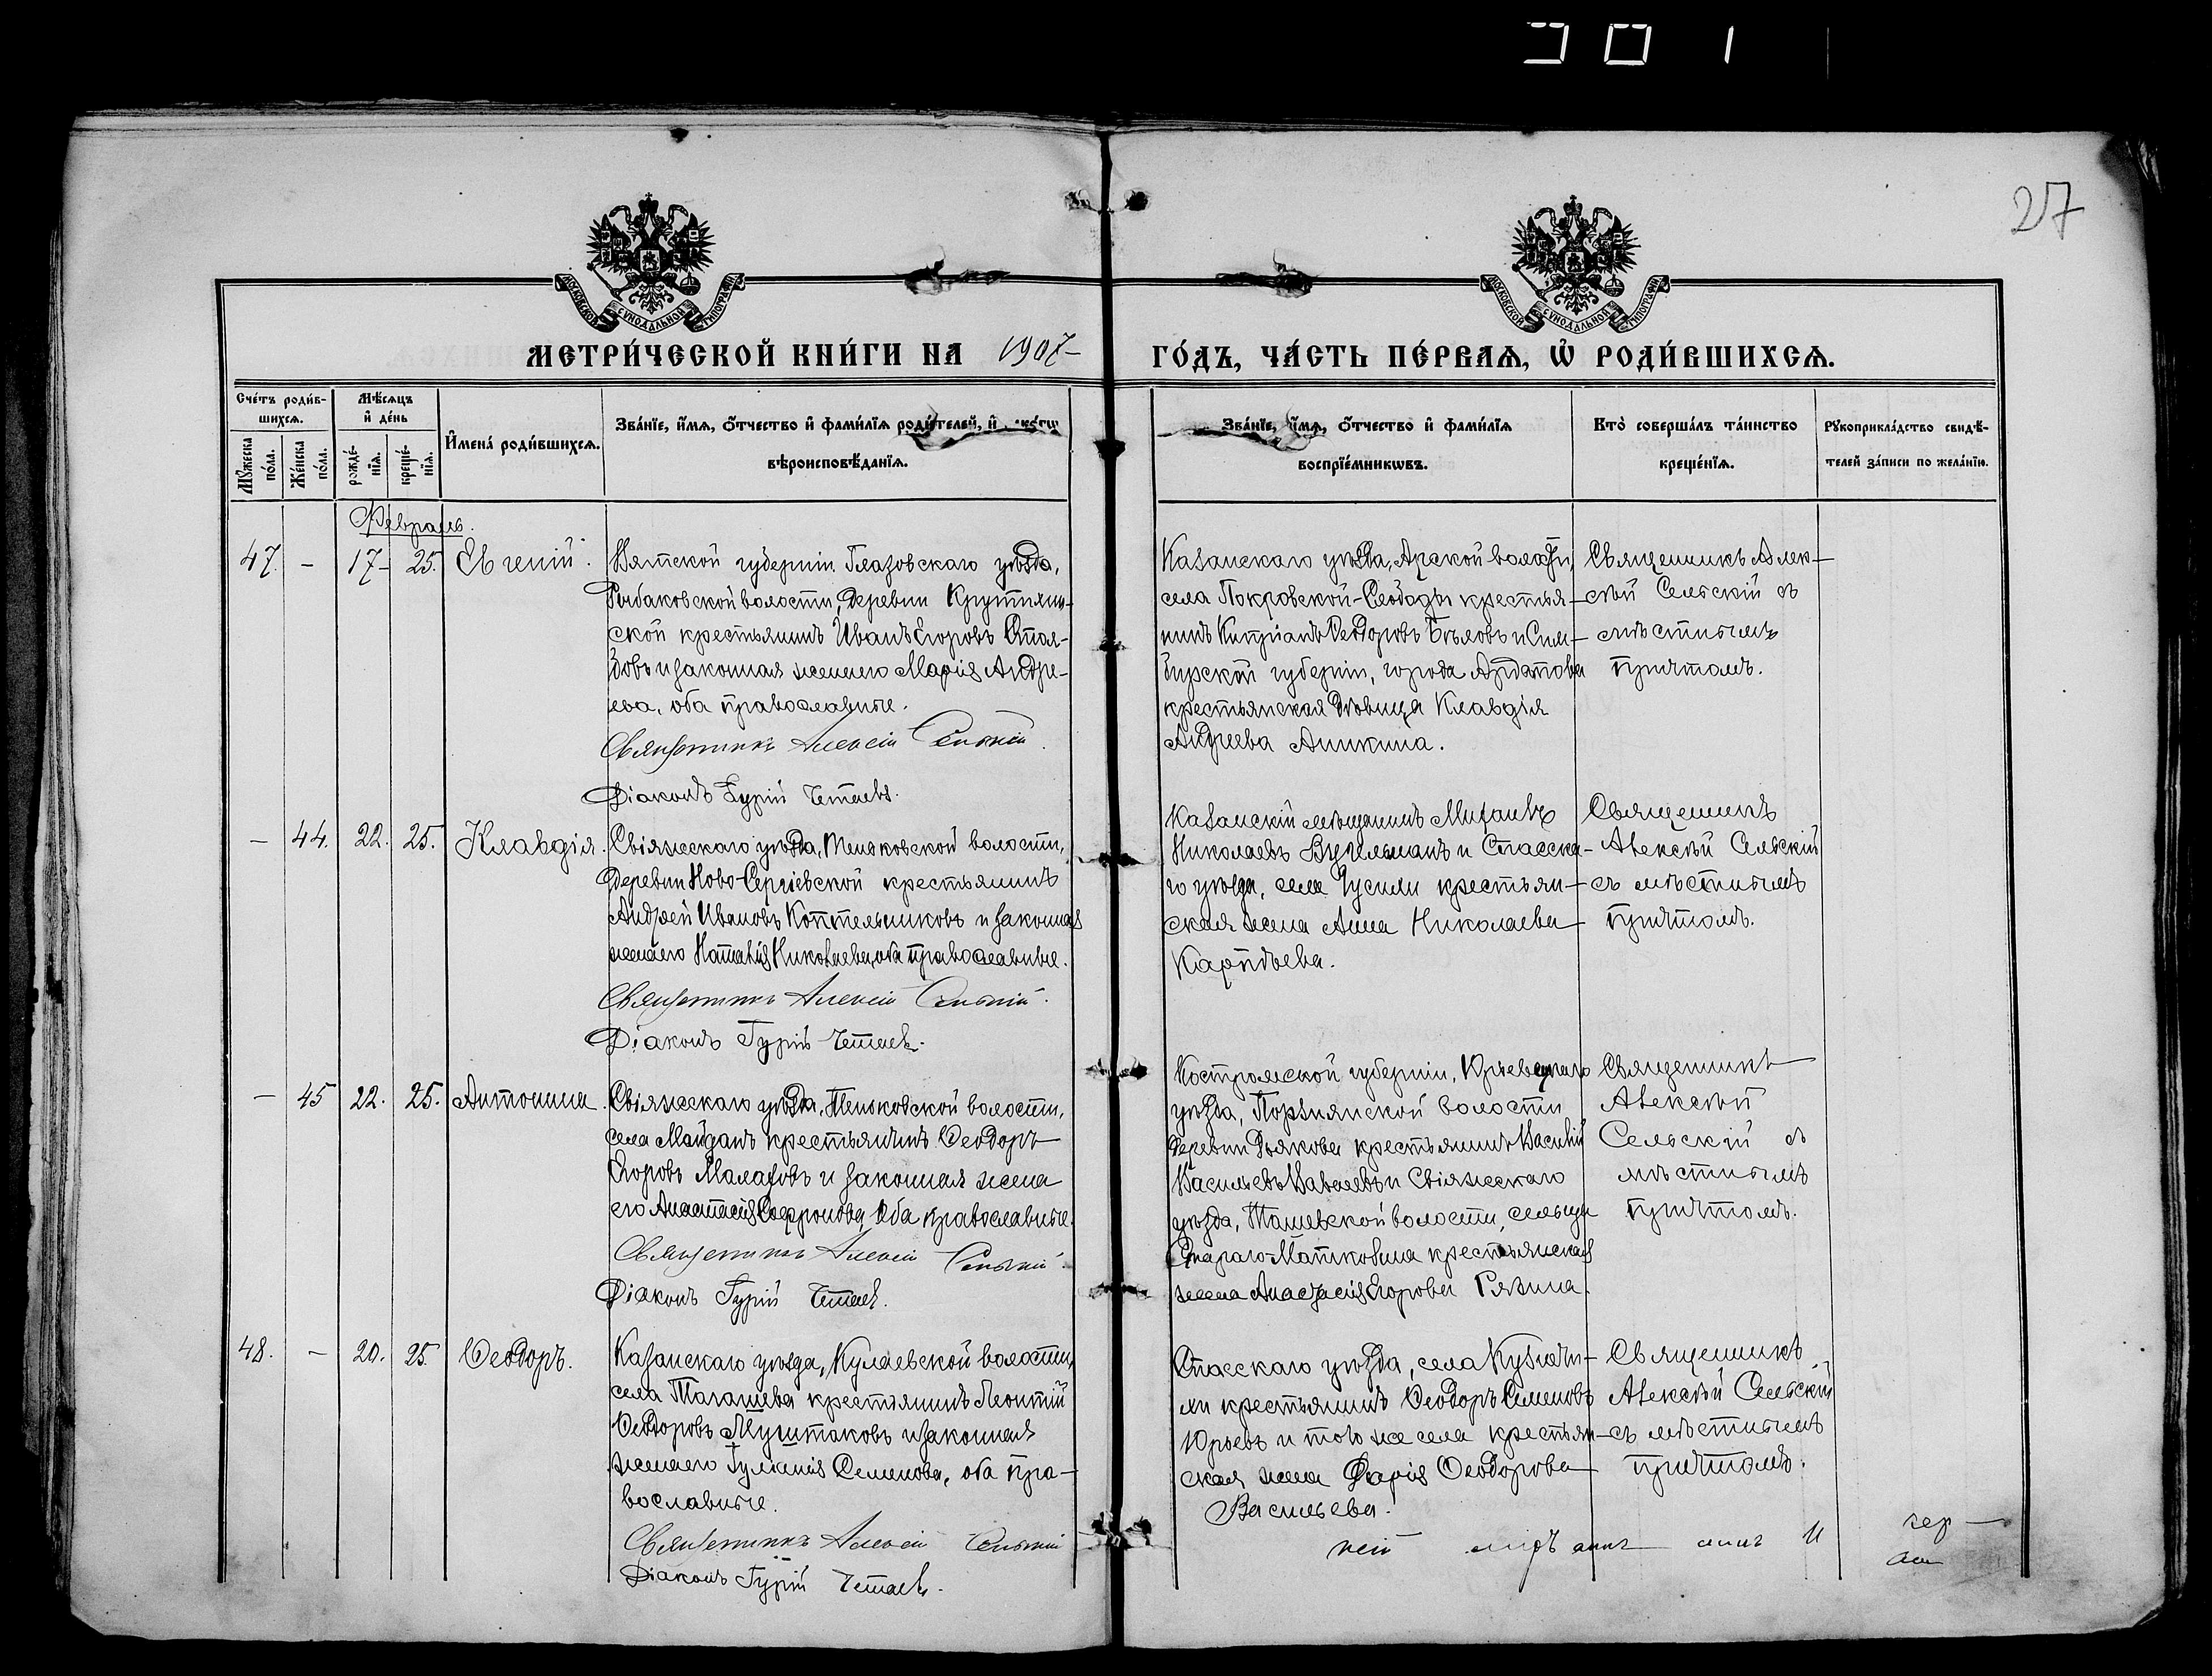 27
МОСКОВСКОЙ СѴНОДАЛЬНОЙ ТИПОГРАФІИ
МОСКОВСКОЙ СѴНОДАЛЬНОЙ ТИПОГРАФІИ
МЕТРИ́ЧЕСКОЙ КНИ́ГИ НА 1907 ГО́ДЪ, ЧА́СТЬ ПЕ́РВАѦ, Ѡ҆ РОДИ́ВШИХСѦ.
Сче́тъ роди́в-
шихсѧ.
Мꙋ́жеска по́ла.
Же́нска по́ла.
Мѣ́сѧцъ
и҆ де́нь
рожде́-нїѧ.
креще́-нїѧ.
И҆мена̀ роди́вшихсѧ.
Зва́нїе, и҆́мѧ, ѻ҆́тчество и҆ фами́лїѧ роди́телей, и҆ ко́гѡ
вѣроисповѣ́данїѧ.
Зва́нїе, и҆́мѧ, ѻ҆́тчество и҆ фами́лїѧ
воспрїе́мникѡвъ.
Кто̀ соверша́лъ та́инство
креще́нїѧ.
Рꙋкоприкла́дство свидѣ́-
телей за́писи по жела́нїю.
Февраль.
47. - 17- 25. Евгеній.
Вятской губерніи Глазовскаго уѣзда,
Рыбаковской волости, деревни
ской крестьянинъ Иванъ Егоровъ
и законная жена его Марія Андре-
ева, оба православные.
Священникъ Алексій Сельскій.
Діаконъ Гурій Четаевъ.
Казанскаго уѣзда, Арской волости,
села Покровской-Слободы крестья-
нинъ Кипріанъ Ѳеодоровъ Бѣловъ и Сим-
бирской губерніи, города Ардатова
крестьянская дѣвица Клавдія
Андреева Аникина.
Священникъ Алек-
сѣй Сельскій съ
мѣстнымъ
причтомъ.
- 44. 22. 25. Клавдія.
Свіяжскаго уѣзда, Теньковской волости,
деревни Ново-Сергіевской крестьянинъ
Андрей Ивановъ Коптельниковъ и законная
жена его Наталія Николаева, оба православные.
Священникъ Алексій Сельскій.
Діаконъ Гурій Четаевъ.
Казанскій мѣщанинъ Михаилъ
Николаевъ и Спасска-
го уѣзда, села крестьян-
ская жена Анна Николаева
Священникъ
Алексѣй Сельскій
съ мѣстнымъ
причтомъ.
- 45 22. 25. Антонина.
Свіяжскаго уѣзда, Теньковской волости,
села Майданъ крестьянинъ Ѳеодоръ
Егоровъ Малаховъ и законная жена
его Анастасія Софронова, оба православные.
Священникъ Алексій Сельскій.
Діаконъ Гурій Четаевъ.
Костромской губерніи, Юрьевецкаго
уѣзда, волости
деревни Дьякова крестьянинъ Василій
Васильевъ и Свіяжскаго
уѣзда, Ташевской волости, сельца
крестьянская
жена Анастасія Егорова Рязина.
Священникъ
Алексѣй
Сельскій съ
мѣстнымъ
причтомъ.
48. - 20. 25. Ѳеодоръ.
Казанскаго уѣзда, Кулаевской волости,
села Тагашева крестьянинъ Леонтій
Ѳеодоровъ Муштаковъ и законная
жена его Гуліанія Семенова, оба пра-
вославные.
Священникъ Алексій Сельскій
Діаконъ Гурій Четаевъ.
Спасскаго уѣзда, села
крестьянинъ Ѳеодоръ Семеновъ
Юрьевъ и того же села крестьян-
ская жена Дарія Ѳеодорова
Васильева.
Священникъ
Алексѣй Сельскій
съ мѣстнымъ
причтомъ.